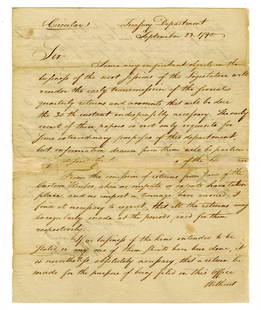 (Circular)
Treasury Department
September 22. 1790.
Sir
Some important objects in the
business of the next session of the Legislature will
render the early transmission of the general
quarterly returns and accounts that will be due
the 30th instant indispensably necessary. The early
receipt of these papers is not only requisite for
some extraordinary purposes of this department,
but information drawn from them will be
of the
From the omission of returns from some of the
Custom Houses, when no imports or exports have taken
place, and no import or tonnage have accrued I
find it necessary to request, that all the returns may
be regularly made at the periods fixed for them
respectively.
If no business of the kind intended to be
stated in any one of them should have been done, it
is nevertheless absolutely necessary that a return be
made for the purpose of being filed in this Office
Without